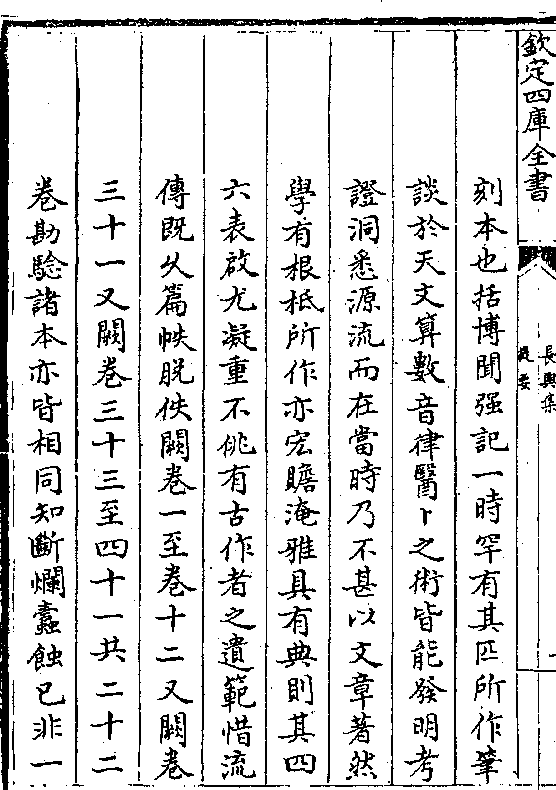 欽定四庫全書
長興集
提要
刻本也括博聞强記一時罕有其匹所作筆
談於天文算數音律醫卜之術皆能發明考
證洞悉源流而在當時乃不甚以文章著然
學有根柢所作亦宏贍淹雅具有典則其四
六表啟尤凝重不佻有古作者之遺範惜流
傳既久篇帙脫佚闕卷一至卷十二又闕卷
三十一又闕卷三十三至四十一共二十二
卷勘騐諸本亦皆相同知斷爛蠧蝕已非一